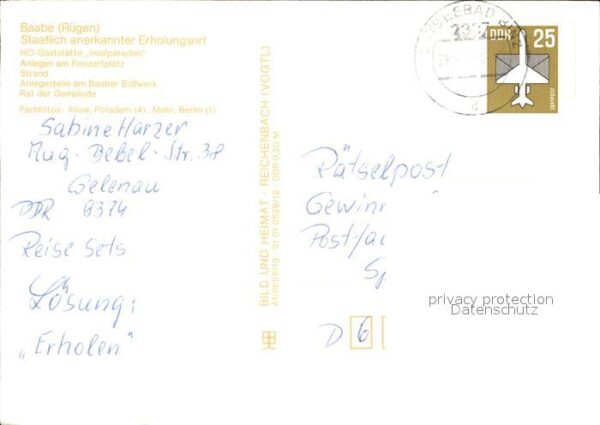 Baabe (Rügen)
Staatlich anerkannter Erholungsort
HO-Gaststätte „Inselparadies"
Anlagen am Konzertplatz
Strand
Anlegestelle am Baaber Bollwerk
Rat der Gemeinde
Farbfotos: Ihlow, Potsdam (4); Mohr, Berlin (1)
Sabine Harzer
Aug.-Bebel-Str. 38
Gelenau
DDR 9374
Reise Sets
Lösung:
„Erholen"
BILD UND HEIMAT · REICHENBACH (VOGTL)
DDR 0,20 M
DDR 25
LUFTPOST
Rätselpost
Gewinn
Postfac
D 6
privacy protection
Datenschutz